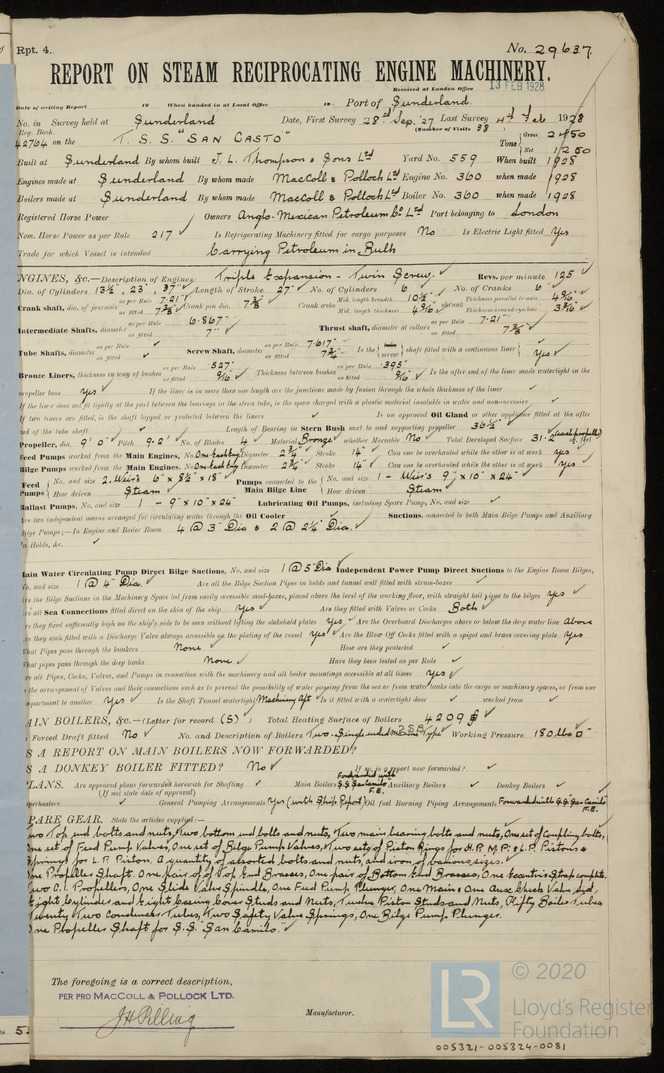 Rpt. 4.
No. 29637
REPORT ON STEAM RECIPROCATING ENGINE MACHINERY.
13 FEB 1928
Received at London Office
Date of writing Report 19 When handed in at Local Office 19 Port of Sunderland.
No. in Survey held at Sunderland Date, First Survey 28th Sep. '27 Last Survey 4th Feb 1928
Reg. Book. (Number of Visits 38)
42764 on the T. S. S. "SAN CASTO" Tons Gross 2450 Net 1250
Built at Sunderland By whom built J. L. Thompson & Sons Ltd Yard No. 559 When built 1928
Engines made at Sunderland By whom made MacColl & Pollock Ltd Engine No. 360 when made 1928
Boilers made at Sunderland By whom made MacColl & Pollock Ltd Boiler No. 360 when made 1928
Registered Horse Power Owners Anglo-Mexican Petroleum Co Ltd Port belonging to London
Nom. Horse Power as per Rule 217 Is Refrigerating Machinery fitted for cargo purposes No Is Electric Light fitted Yes
Trade for which Vessel is intended Carrying Petroleum in Bulk
NGINES, &c.—Description of Engines Triple Expansion - Twin Screw. Revs. per minute 125
Dia. of Cylinders 13½", 23", 37" Length of Stroke 27" No. of Cylinders 6 No. of Cranks 6
Crank shaft, dia. of journals as per Rule 7.21" as fitted 7⅜" Crank pin dia. 7⅜" Crank webs Mid. length breadth 10½" Mid. length thickness 4⅝" shrunk Thickness parallel to axis 4⅝" Thickness around eyehole 3⅜"
Intermediate Shafts, diameter as per Rule 6.867" as fitted 7" Thrust shaft, diameter at collars as per Rule 7.21" as fitted 7⅜"
Tube Shafts, diameter as per Rule as fitted Screw Shaft, diameter as per Rule 7.617" as fitted 7¾" Is the screw shaft fitted with a continuous liner Yes
Bronze Liners, thickness in way of bushes as per Rule .527" as fitted 9/16" Thickness between bushes as per Rule .395" as fitted 9/16" Is the after end of the liner made watertight in the
propeller boss Yes If the liner is in more than one length are the junctions made by fusion through the whole thickness of the liner
If the liner does not fit tightly at the part between the bearings in the stern tube, is the space charged with a plastic material insoluble in water and non-corrosive
If two liners are fitted, is the shaft lapped or protected between the liners Is an approved Oil Gland or other appliance fitted at the after
end of the tube shaft Length of Bearing in Stern Bush next to and supporting propeller 36½"
Propeller, dia. 9' 0" Pitch 9.2' No. of Blades 4 Material Bronze whether Moveable No Total Developed Surface 31.2 (each propeller) sq. feet
Feed Pumps worked from the Main Engines, No. One each eng Diameter 2¾" Stroke 14" Can one be overhauled while the other is at work Yes
Bilge Pumps worked from the Main Engines, No. One each eng Diameter 2¾" Stroke 14" Can one be overhauled while the other is at work Yes
Feed Pumps No. and size 2. Weir's 6" x 8½" x 18" How driven Steam Pumps connected to the Main Bilge Line No. and size 1 - Weir's 9" x 10" x 24" How driven Steam
Ballast Pumps, No. and size 1 - 9" x 10" x 24" Lubricating Oil Pumps, including Spare Pump, No. and size
Are two independent means arranged for circulating water through the Oil Cooler Suctions, connected to both Main Bilge Pumps and Auxiliary
Bilge Pumps;—In Engine and Boiler Room 4 @ 3" Dia & 2 @ 2¼" Dia.
In Holds, &c.
Main Water Circulating Pump Direct Bilge Suctions, No. and size 1 @ 5" Dia Independent Power Pump Direct Suctions to the Engine Room Bilges,
No. and size 1 @ 4" Dia. Are all the Bilge Suction Pipes in holds and tunnel well fitted with strum-boxes
Are the Bilge Suctions in the Machinery Space led from easily accessible mud-boxes, placed above the level of the working floor, with straight tail pipes to the bilges Yes
Are all Sea Connections fitted direct on the skin of the ship Yes Are they fitted with Valves or Cocks Both
Are they fixed sufficiently high on the ship's side to be seen without lifting the stokehold plates Yes Are the Overboard Discharges above or below the deep water line Above
Are they each fitted with a Discharge Valve always accessible on the plating of the vessel Yes Are the Blow Off Cocks fitted with a spigot and brass covering plate Yes
What Pipes pass through the bunkers None How are they protected
What pipes pass through the deep tanks None Have they been tested as per Rule
Are all Pipes, Cocks, Valves, and Pumps in connection with the machinery and all boiler mountings accessible at all times Yes
Is the arrangement of Valves and their connections such as to prevent the possibility of water passing from the sea or from water tanks into the cargo or machinery spaces, or from one
compartment to another Yes Is the Shaft Tunnel watertight Machinery Aft Is it fitted with a watertight door worked from
AIN BOILERS, &c.—(Letter for record (S)) Total Heating Surface of Boilers 4209
Forced Draft fitted No No. and Description of Boilers Two-Single ended Type Working Pressure 180 lbs
S A REPORT ON MAIN BOILERS NOW FORWARDED?
S A DONKEY BOILER FITTED? No If so, is a report now forwarded?
LANS. Are approved plans forwarded herewith for Shafting Main Boilers Forwarded with S.S. San Camilo F.E. Auxiliary Boilers Donkey Boilers
(If not state date of approval)
Superheaters General Pumping Arrangements Yes (with Ship Report) Oil fuel Burning Piping Arrangements Forwarded with S.S. San Camilo F.E.
PARE GEAR. State the articles supplied:—
Two Top end bolts and nuts, Two bottom end bolts and nuts, Two main bearing bolts and nuts, One set of Coupling bolts,
One set of Feed Pump Valves, One set of Bilge Pump Valves, Two sets of Piston Rings for H.P. M.P. & L.P. Pistons &
Springs for L.P. Piston. A quantity of assorted bolts and nuts, and iron of various sizes.
One Propeller Shaft. One pair of Top End Brasses, One pair of Bottom End Brasses, One Eccentric Strap complete.
Two C.I. Propellers, One Slide Valve Spindle, One Feed Pump Plunger, One Main & One Aux Check Valve Lyd,
Eight Cylinder and Eight Casing Cover Studs and Nuts, Twelve Piston Studs and Nuts, Fifty Boiler Tubes
Twenty Two Condenser Tubes, Two Safety Valve Springs, One Bilge Pump Plunger.
One Propeller Shaft for S.S. "San Camilo."
The foregoing is a correct description,
PER PRO MACCOLL & POLLOCK LTD.
Manufacturer.
© 2020
LR
Lloyd's Register
Foundation
005321-005324-0081